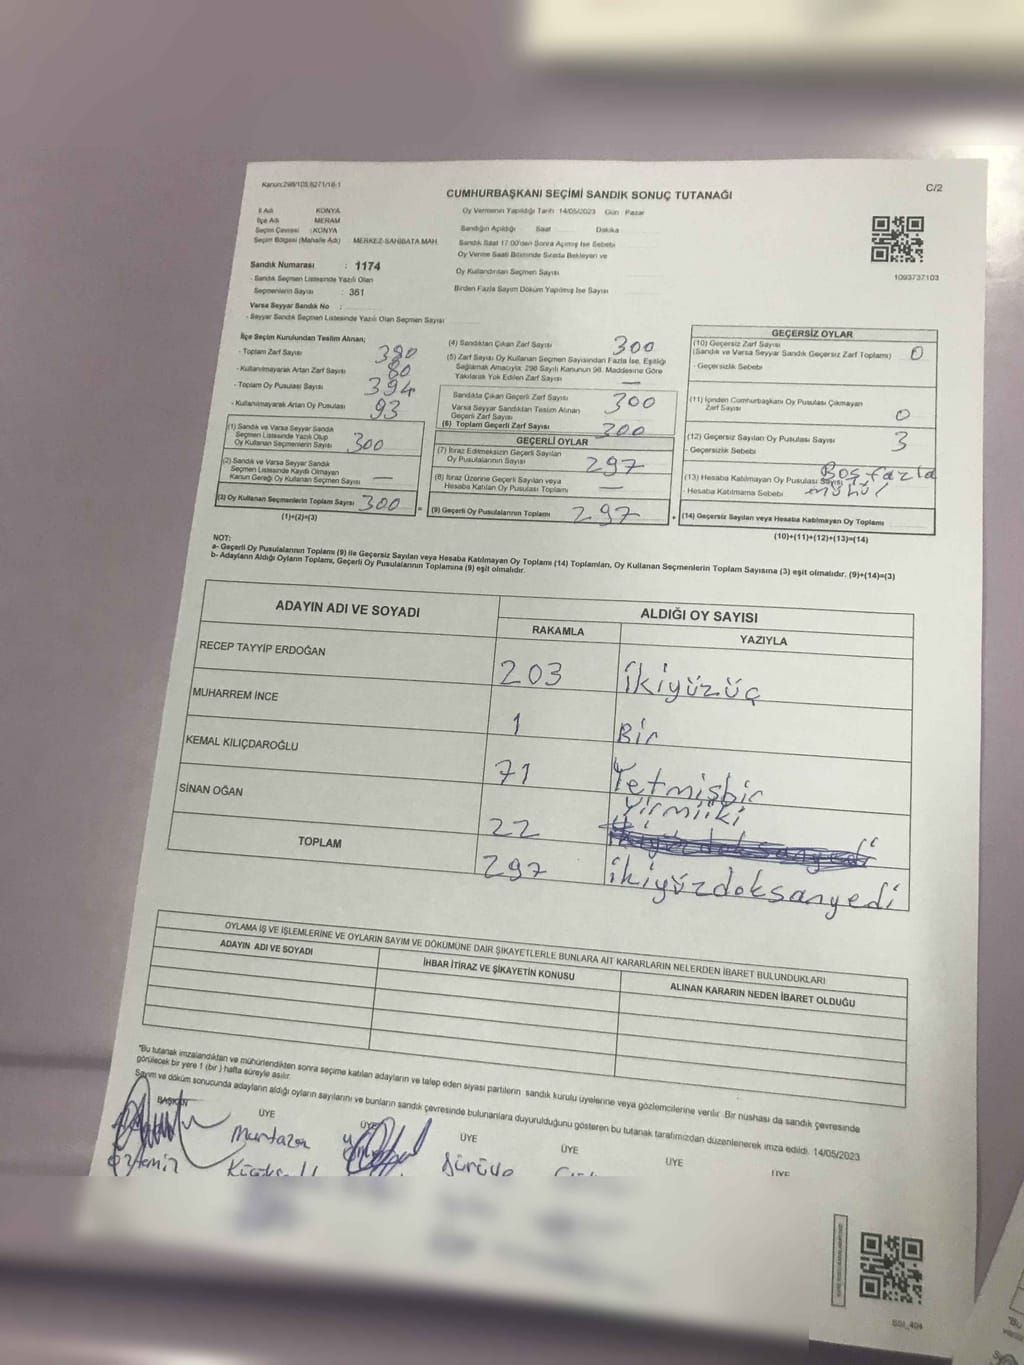 Kanun:298/105,6271/18-1
C/2
CUMHURBAŞKANI SEÇİMİ SANDIK SONUÇ TUTANAĞI
İl Adı KONYA
İlçe Adı MERAM
Seçim Çevresi : KONYA
Seçim Bölgesi (Mahalle Adı) MERKEZ-SAHİBATA MAH.
Sandık Numarası : 1174
- Sandık Seçmen Listesinde Yazılı Olan
Seçmenlerin Sayısı : 361
Varsa Seyyar Sandık No :
- Seyyar Sandık Seçmen Listesinde Yazılı Olan Seçmen Sayısı
Oy Vermenin Yapıldığı Tarih 14/05/2023 Gün Pazar
Sandığın Açıldığı Saat Dakika
Sandık Saat 17.00'den Sonra Açmış İse Sebebi
Oy Verme Saati Bitiminde Sırada Bekleyen ve
Oy Kullandırılan Seçmen Sayısı
Birden Fazla Sayım Döküm Yapılmış İse Sayısı
1093737103
İlçe Seçim Kurulundan Teslim Alınan;
- Toplam Zarf Sayısı 380
- Kullanılmayarak Artan Zarf Sayısı 80
- Toplam Oy Pusulası Sayısı 394
- Kullanılmayarak Artan Oy Pusulası 93
(1) Sandık ve Varsa Seyyar Sandık
Seçmen Listesinde Yazılı Olup
Oy Kullanan Seçmenlerin Sayısı 300
(2) Sandık ve Varsa Seyyar Sandık
Seçmen Listesinde Kayıtlı Olmayan
Kanun Gereği Oy Kullanan Seçmen Sayısı —
(3) Oy Kullanan Seçmenlerin Toplam Sayısı 300 =
(1)+(2)=(3)
(4) Sandıktan Çıkan Zarf Sayısı 300
(5) Zarf Sayısı Oy Kullanan Seçmen Sayısından Fazla İse, Eşitliği
Sağlamak Amacıyla; 298 Sayılı Kanunun 98. Maddesine Göre
Yakılarak Yok Edilen Zarf Sayısı —
Sandıkta Çıkan Geçerli Zarf Sayısı 300
Varsa Seyyar Sandıktan Teslim Alınan
Geçerli Zarf Sayısı
(6) Toplam Geçerli Zarf Sayısı 300
GEÇERLİ OYLAR
(7) İtiraz Edilmeksizin Geçerli Sayılan
Oy Pusulalarının Sayısı 297
(8) İtiraz Üzerine Geçerli Sayılan veya
Hesaba Katılan Oy Pusulası Toplamı —
(9) Geçerli Oy Pusulalarının Toplamı 297 +
GEÇERSİZ OYLAR
(10) Geçersiz Zarf Sayısı
(Sandık ve Varsa Seyyar Sandık Geçersiz Zarf Toplamı) 0
- Geçersizlik Sebebi
(11) İçinden Cumhurbaşkanı Oy Pusulası Çıkmayan
Zarf Sayısı 0
(12) Geçersiz Sayılan Oy Pusulası Sayısı 3
- Geçersizlik Sebebi
Boş fazla
(13) Hesaba Katılmayan Oy Pusulası Sayısı
- Hesaba Katılmama Sebebi mühül
(14) Geçersiz Sayılan veya Hesaba Katılmayan Oy Toplamı
(10)+(11)+(12)+(13)=(14)
NOT:
a- Geçerli Oy Pusulalarının Toplamı (9) ile Geçersiz Sayılan veya Hesaba Katılmayan Oy Toplamı (14) Toplamları, Oy Kullanan Seçmenlerin Toplam Sayısına (3) eşit olmalıdır. (9)+(14)=(3)
b- Adayların Aldığı Oyların Toplamı, Geçerli Oy Pusulalarının Toplamına (9) eşit olmalıdır.
ADAYIN ADI VE SOYADI ALDIĞI OY SAYISI
RAKAMLA YAZIYLA
RECEP TAYYİP ERDOĞAN 203 ikiyüzüç
MUHARREM İNCE 1 Bir
KEMAL KILIÇDAROĞLU 71 Yetmişbir
SİNAN OĞAN 22 Yirmiiki
TOPLAM 297 ikiyüzdoksanyedi
OYLAMA İŞ VE İŞLEMLERİNE VE OYLARIN SAYIM VE DÖKÜMÜNE DAİR ŞİKAYETLERLE BUNLARA AİT KARARLARIN NELERDEN İBARET BULUNDUKLARI
ADAYIN ADI VE SOYADI İHBAR İTİRAZ VE ŞİKAYETİN KONUSU ALINAN KARARIN NEDEN İBARET OLDUĞU
"Bu tutanak imzalandıktan ve mühürlendikten sonra seçime katılan adayların ve talep eden siyasi partilerin sandık kurulu üyelerine veya gözlemcilerine verilir. Bir nüshası da sandık çevresinde
görülecek bir yere 1 (bir) hafta süreyle asılır.
Sayım ve döküm sonucunda adayların aldığı oyların sayılarını ve bunların sandık çevresinde bulunanlara duyurulduğunu gösteren bu tutanak tarafımızdan düzenlenerek imza edildi. 14/05/2023
BAŞKAN ÜYE ÜYE ÜYE ÜYE ÜYE ÜYE